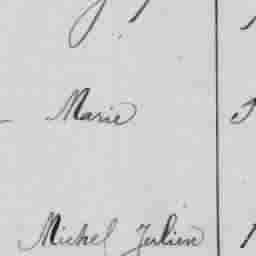 Marie
Michel Julien